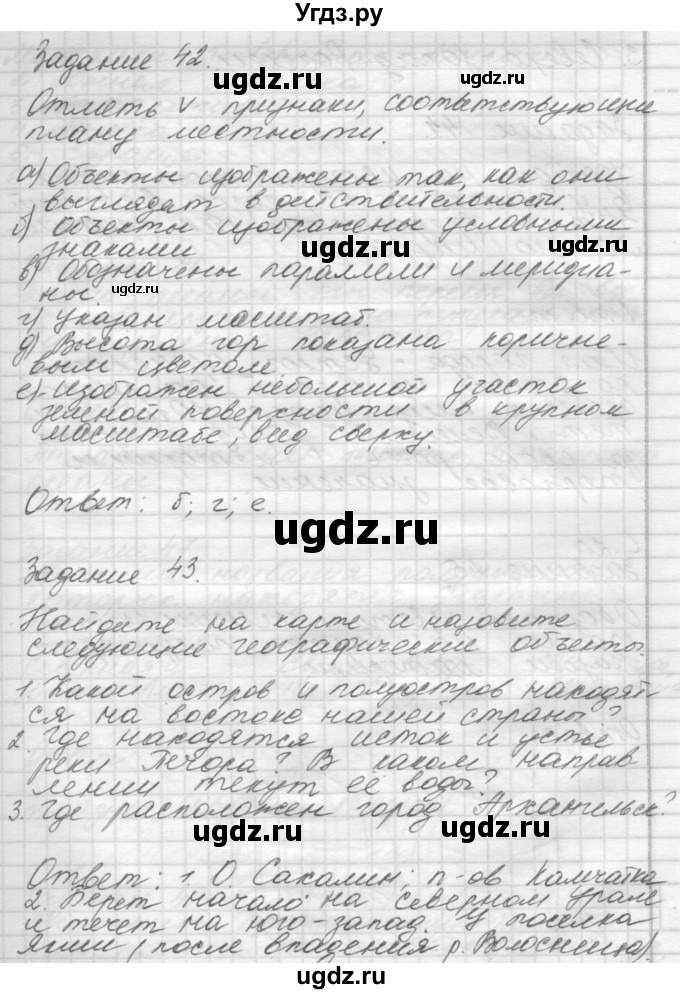 Угдз.ру
Задание 42.
ugdz.ru
Отметь v признаки, соответствующие
плану местности.
а) Объекты изображены так, как они
выглядят в действительности.
ugdz.ru
б) Объекты изображены условными
знаками
ugdz.ru
в) Обозначены параллели и меридиа-
ны.
ugdz.ru
г) Указан масштаб.
д) Высота гор показана коричне-
вым цветом.
ugdz.ru
е) Изображен небольшой участок
земной поверхности в крупном
масштабе, вид сверху.
Ответ: б; г; е.
ugdz.ru
Задание 43.
Найдите на карте и назовите
следующие географические объекты.
ugdz.ru
1. Какой остров и полуостров находят-
ся на востоке нашей страны?
2. Где находятся исток и устье
реки Печора? В каком направ
лении текут её воды?
ugdz.ru
3. Где расположен город Архангельск?
ugdz.ru
Ответ: 1. О. Сакалин; п-ов Камчатка
2. Берет начало на северном Урале
и течет на юго-запад. У поселка
ugdz.ru
Якши (после впадения р. Волосница).
ugdz.ru